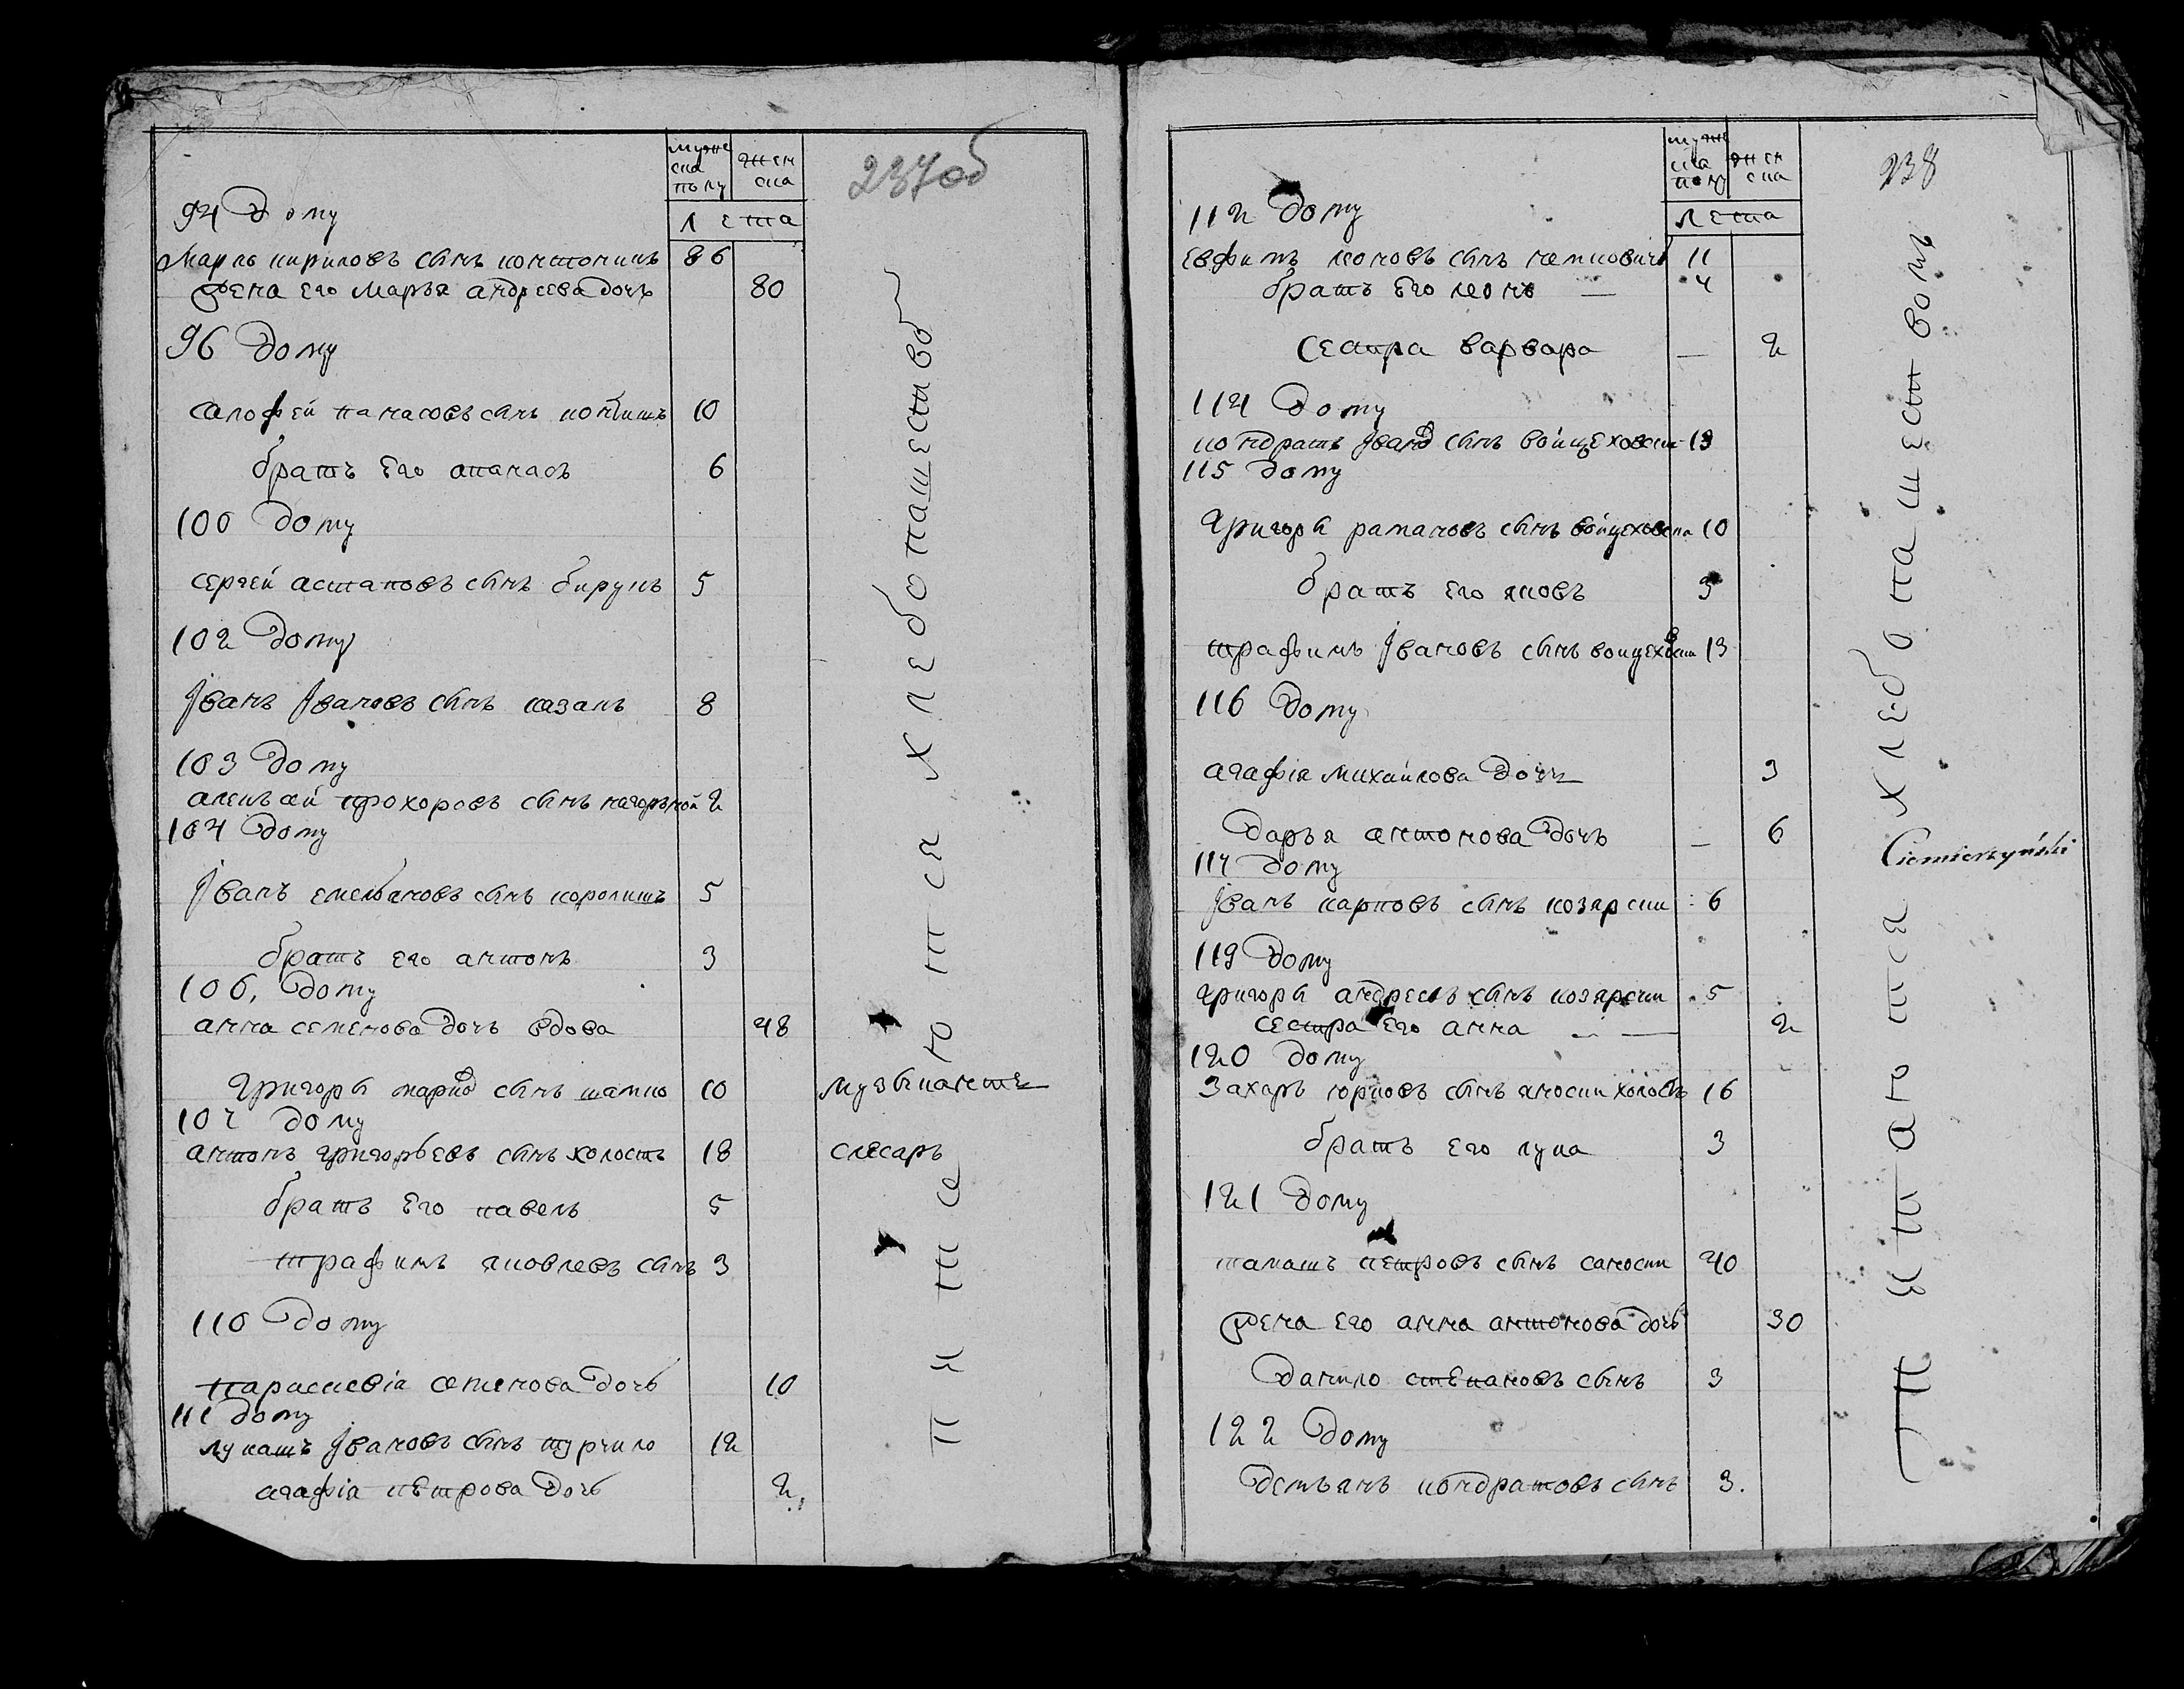 муже
ска
полу
женска
лета
237об
94 Дому
Марко кириловъ сынъ
86
жена его марья андреева дочь
80
96 Дому
салофей панасовъ сынъ
10
братъ его апанасъ
6
100 Дому
сергей астаповъ сынъ бирукъ
5
102 Дому
Јванъ Јвановъ сынъ казакъ
8
103 Дому
алексей прохоровъ сынъ нагорной
2
104 Дому
Јванъ емельановъ сынъ
5
братъ его антонъ
3
106, Дому
анна семенова дочь вдова
48
григорѣй сынъ
10
музыкантъ
107 дому
антонъ григорьевъ сынъ холостъ
18
слесарь
братъ его павелъ
5
трафимъ яковлевъ сынъ
3
110 Дому
параскевіа семенова дочь
10
111 Дому
лукашъ Јвановъ сынъ турчило
12
агафіа петрова дочь
2
питаютса хлебопашество
муже
ска
полу
женска
лета
238
112 Дому
евфимъ леоновъ сынъ
11
братъ его леонъ —
4
сестра варвара —
2
114 Дому
кондратъ сынъ войцеховски
13
115 Дому
григорѣй рамановъ сынъ войцеховски
10
братъ его яковъ
3
трафимъ Јвановъ сынъ войцеховски
13
116 Дому
агафіа михайлова дочь
3
дарья антонова дочь —
6
117 Дому
Јванъ карповъ сынъ козярски
6
119 Дому
григорѣй андреевъ сынъ козярски
5
сестра его анна —
2
120 Дому
захаръ юрковъ сынъ яноски холостъ
16
братъ его лука
3
121 Дому
тамашъ петровъ сынъ саноски
40
жена его анна антонова дочь
30
данило степановъ сынъ
3
122 Дому
демьянъ кондратовъ сынъ
3.
питаютса хлебопашествомъ